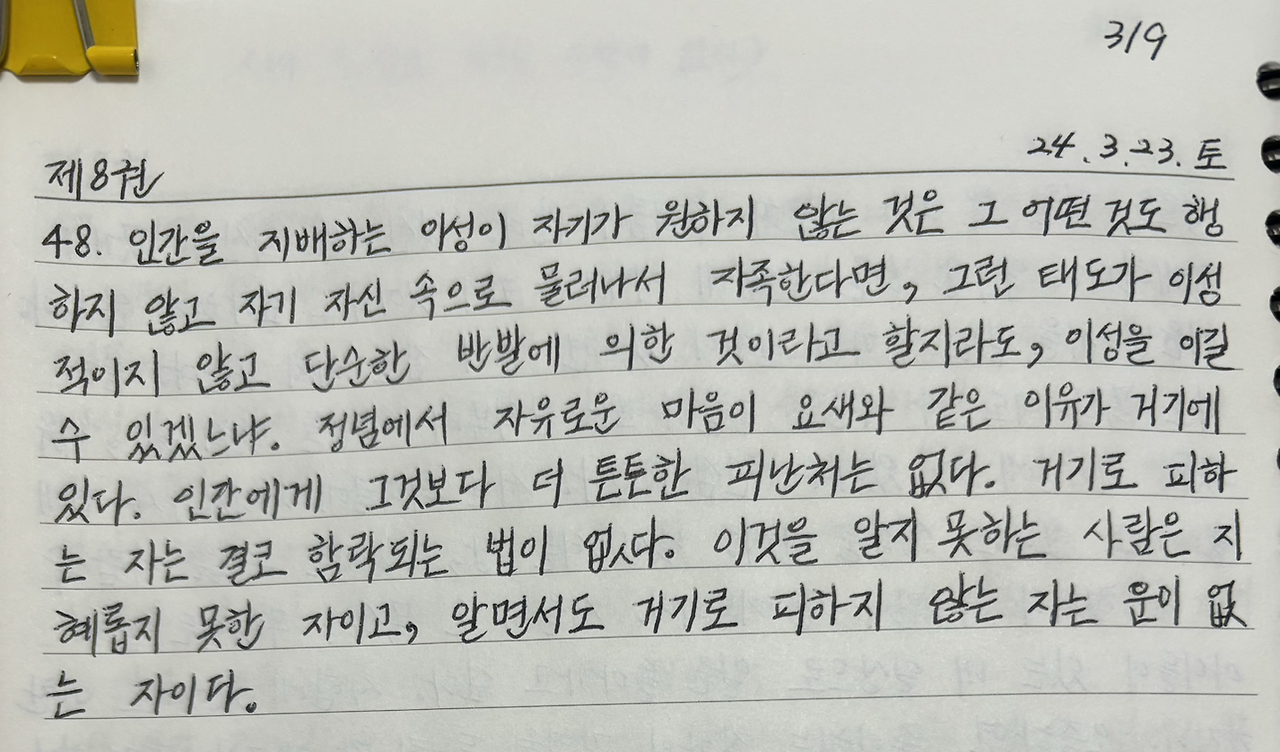 319
24.3.23.토
제8권
48. 인간을 지배하는 이성이 자기가 원하지 않는 것은 그 어떤 것도 행
하지 않고 자기 자신 속으로 물러나서 자족한다면, 그런 태도가 이성
적이지 않고 단순한 반발에 의한 것이라고 할지라도, 이성을 이길
수 있겠느냐. 정념에서 자유로운 마음이 요새와 같은 이유가 거기에
있다. 인간에게 그것보다 더 튼튼한 피난처는 없다. 거기로 피하
는 자는 결코 함락되는 법이 없다. 이것을 알지 못하는 사람은 지
혜롭지 못한 자이고, 알면서도 거기로 피하지 않는 자는 운이 없
는 자이다.